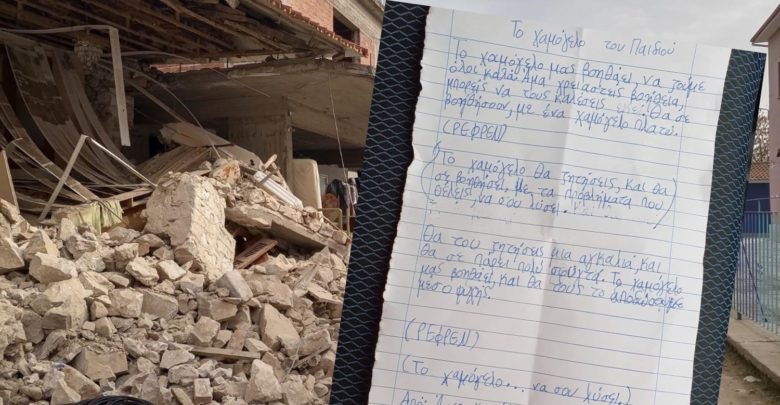 Το χαμόγελο του Παιδιού
Το χαμόγελο μας βοηθάει να ζούμε
όλοι καλά. Άμα χρειαστείς βοήθεια,
μπορείς να τους καλέσεις θα σε
βοηθήσουν, με ένα χαμόγελο πλατύ.
(ΡΕΦΡΕΝ)
(Το χαμόγελο θα ζητήσεις, και θα
σε βοηθήσει, με τα προβλήματα που
θέλεις να σου λύσει.)
Θα του ζητήσεις μια αγκαλιά, και
θα σε πάρει πολύ σφιχτά. Το χαμόγελο
μας βοηθάει, και θα τους το
μέσω
(ΡΕΦΡΕΝ)
(Το χαμόγελο... να σου λύσει.)
Από: